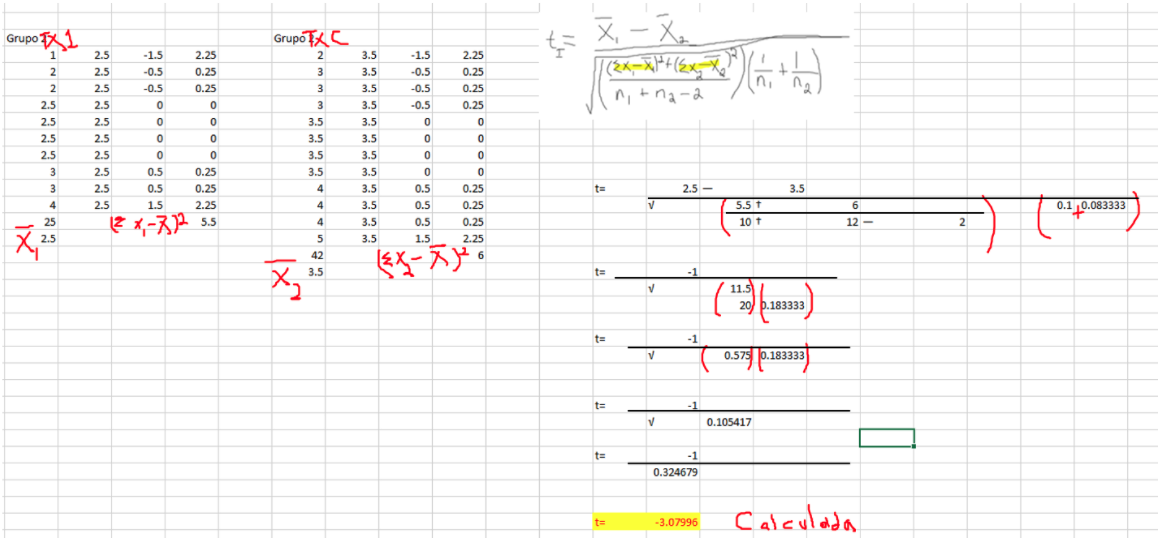 Grupo Tx 1
1 2.5 -1.5 2.25
2 2.5 -0.5 0.25
2 2.5 -0.5 0.25
2.5 2.5 0 0
2.5 2.5 0 0
2.5 2.5 0 0
2.5 2.5 0 0
3 2.5 0.5 0.25
3 2.5 0.5 0.25
4 2.5 1.5 2.25
25 (Σ x₁-x̄)² 5.5
X̄₁ 2.5
Grupo Tx C
2 3.5 -1.5 2.25
3 3.5 -0.5 0.25
3 3.5 -0.5 0.25
3 3.5 -0.5 0.25
3.5 3.5 0 0
3.5 3.5 0 0
3.5 3.5 0 0
3.5 3.5 0 0
4 3.5 0.5 0.25
4 3.5 0.5 0.25
4 3.5 0.5 0.25
5 3.5 1.5 2.25
42 (Σx₂-x̄)² 6
X̄₂ 3.5
t = X̄₁ - X̄₂
√(((Σx₁-x̄₁)²+(Σx₂-x̄₂)²) (1/n₁ + 1/n₂)
n₁ + n₂ - 2
t= 2.5 — 3.5
√ ( 5.5 + 6 ) ( 0.1 + 0.083333 )
10 + 12 — 2
t= -1
√ ( 11.5 ) ( )
20 0.183333
t= -1
√ ( 0.575 ) ( 0.183333 )
t= -1
√ 0.105417
t= -1
0.324679
t= -3.07996 Calculada